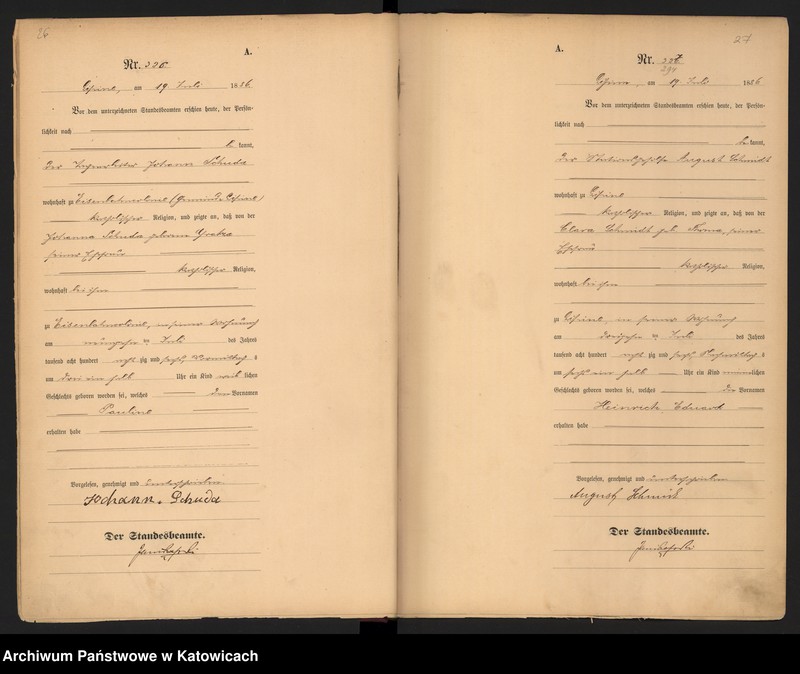 26
A.
Nr. 326
am 19 Juli 1886
Vor dem unterzeichneten Standesbeamten erschien heute, der Persön-
lichkeit nach
be kannt,
der Johann Schuda
wohnhaft zu
katholischer Religion, und zeigte an, daß von der
Johanna Schuda geborene
seiner Ehefrau
katholischer Religion,
wohnhaft bei ihm
zu in seiner Wohnung
am ten Juli des Jahres
tausend acht hundert acht zig und sechs, Vormittag s
um drei ein halb Uhr ein Kind weib lichen
Geschlechts geboren worden sei, welches den Vornamen
Pauline
erhalten habe
Vorgelesen, genehmigt und unterschrieben
Johann Schuda
Der Standesbeamte.
27
A.
Nr. 327
am 19 Juli 1886
Vor dem unterzeichneten Standesbeamten erschien heute, der Persön-
lichkeit nach
be kannt,
der August Schmidt
wohnhaft zu
katholischer Religion, und zeigte an, daß von der
Clara Schmidt geb. seiner
Ehefrau
katholischer Religion,
wohnhaft bei ihm
zu in seiner Wohnung
am ten Juli des Jahres
tausend acht hundert acht zig und sechs, Nachmittag s
um sechs ein halb Uhr ein Kind männlichen
Geschlechts geboren worden sei, welches die Vornamen
Heinrich Eduard
erhalten habe
Vorgelesen, genehmigt und unterschrieben
August Schmidt
Der Standesbeamte.
Archiwum Państwowe w Katowicach